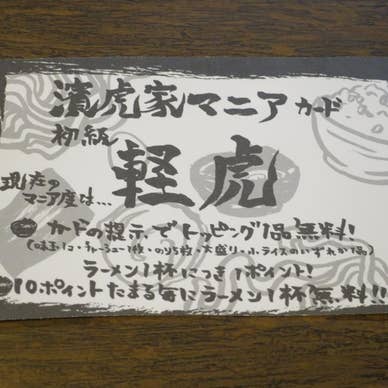 濱虎家マニアカード
初級
軽虎
現在の
マニア度は...
カードの提示でトッピング1品無料!
(味玉1コ・チャーシュー1枚・のり5枚・大盛り・小ライスのいずれか1品)
ラーメン1杯につき1ポイント!
10ポイントたまる毎にラーメン1杯無料!!